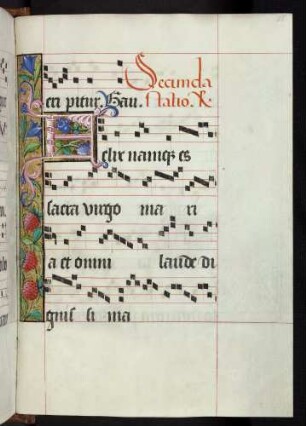 Secunda
eri pitur. Gau. statio. R
Felix namq; es
sacra virgo ma ri
a et omni laude di
gnis si ma